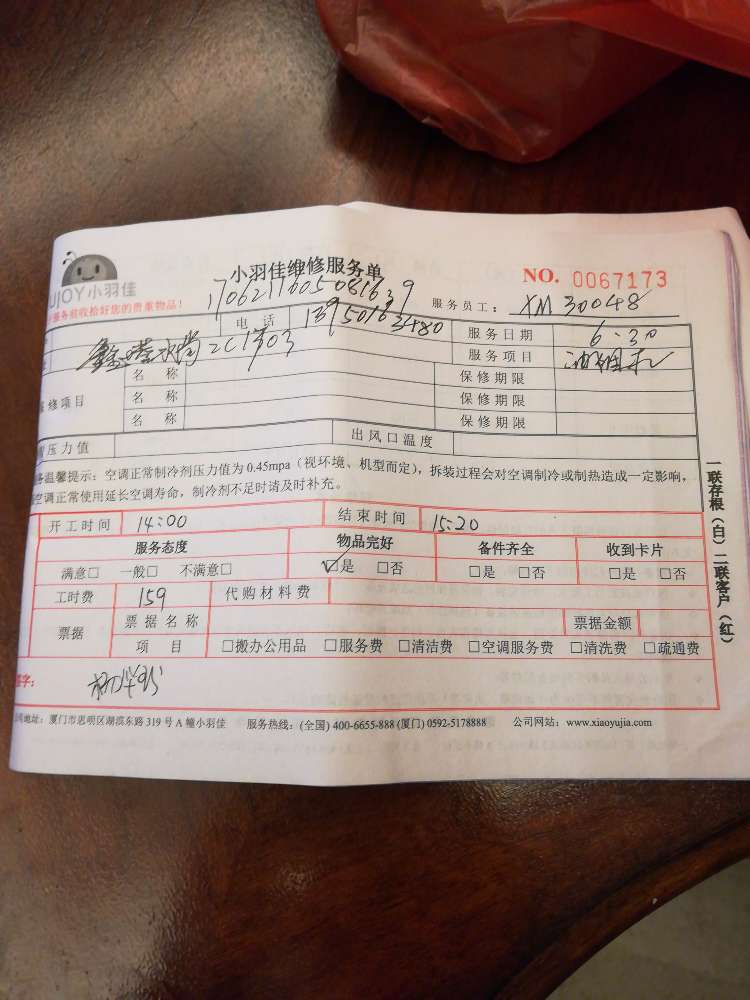 UJOY小羽佳
小羽佳维修服务单
NO. 0067173
服务前收拾好您的贵重物品!
服务员工: XM30048
电 话 13950163480
服务日期 6.30
2C1703
服务项目 油烟机
修项目 名 称 保修期限
名 称 保修期限
名 称 保修期限
压力值 出风口温度
温馨提示:空调正常制冷剂压力值为 0.45mpa(视环境、机型而定),拆装过程会对空调制冷或制热造成一定影响,
空调正常使用延长空调寿命,制冷剂不足时请及时补充。
开工时间 14:00 结束时间 15:20
服务态度 物品完好 备件齐全 收到卡片
满意□ 一般□ 不满意□ ☑是 □否 □是 □否 □是 □否
工时费 159 代购材料费
票据 票据名称 票据金额
项 目 □搬办公用品 □服务费 □清洁费 □空调服务费 □清洗费 □疏通费
签字:
地址:厦门市思明区湖滨东路 319 号 A 幢小羽佳 服务热线:(全国) 400-6655-888 (厦门) 0592-5178888 公司网站:www.xiaoyujia.com
一联存根(白)二联客户(红)